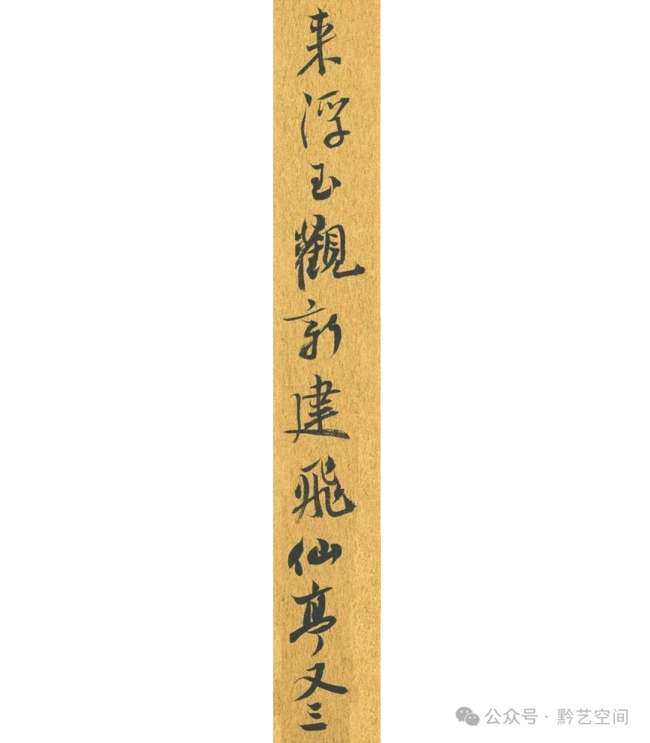 来浮玉觀新建飛仙亭又三
公众号·黔艺空间